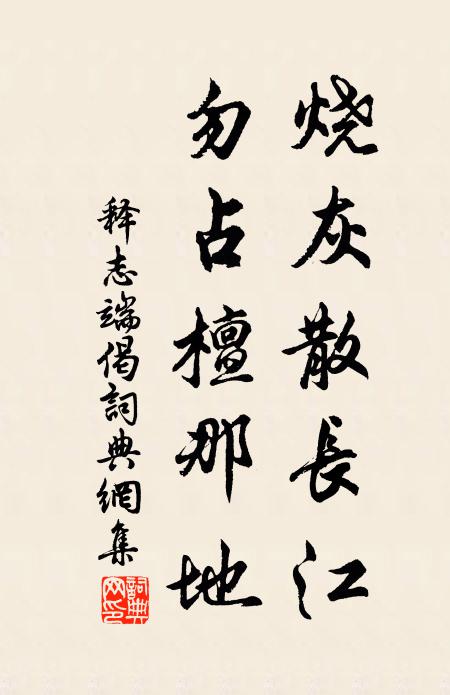 烧灰散長江
勿占檀那地
释志端偈詞典網集
詞典网印